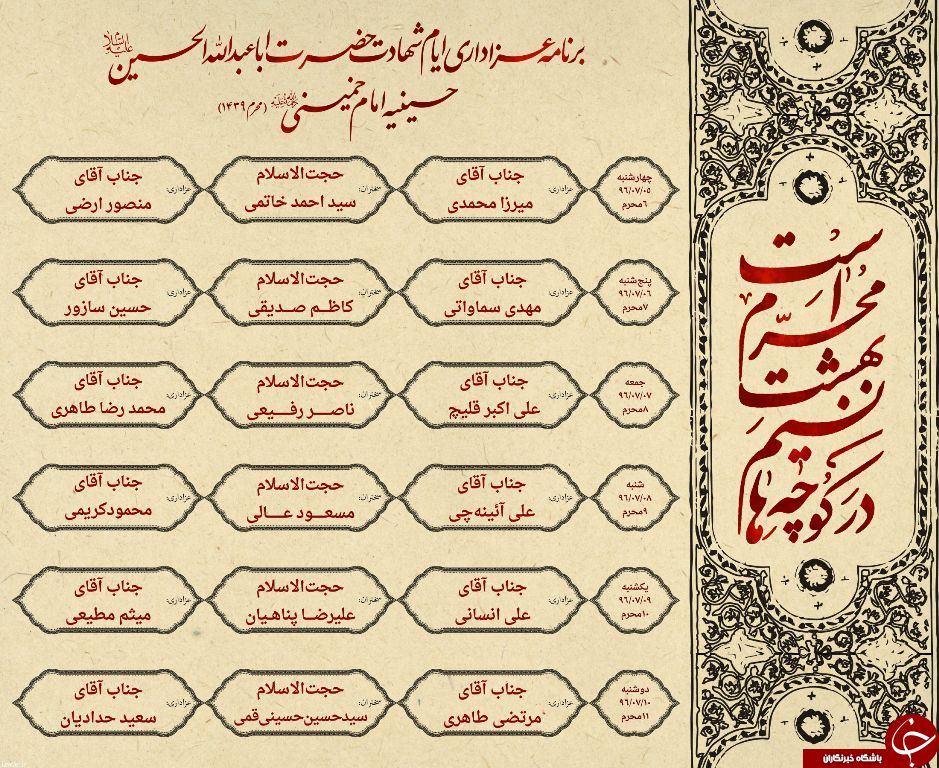 برنامه عزاداری ایام شهادت حضرت اباعبدالله الحسین علیه‌السلام
حسینیه امام خمینی (محرم ۱۴۳۹)
چهارشنبه
۹۶/۰۷/۰۵
۶محرم
عزاداری:
جناب آقای
میرزا محمدی
سخنران:
حجت‌الاسلام
سید احمد خاتمی
عزاداری:
جناب آقای
منصور ارضی
پنج‌شنبه
۹۶/۰۷/۰۶
۷محرم
عزاداری:
جناب آقای
مهدی سماواتی
سخنران:
حجت‌الاسلام
کاظم صدیقی
عزاداری:
جناب آقای
حسین سازور
جمعه
۹۶/۰۷/۰۷
۸محرم
عزاداری:
جناب آقای
علی اکبر قلیچ
سخنران:
حجت‌الاسلام
ناصر رفیعی
عزاداری:
جناب آقای
محمد رضا طاهری
شنبه
۹۶/۰۷/۰۸
۹محرم
عزاداری:
جناب آقای
علی آئینه‌چی
سخنران:
حجت‌الاسلام
مسعود عالی
عزاداری:
جناب آقای
محمودکریمی
یکشنبه
۹۶/۰۷/۰۹
۱۰محرم
عزاداری:
جناب آقای
علی انسانی
سخنران:
حجت‌الاسلام
علیرضا پناهیان
عزاداری:
جناب آقای
میثم مطیعی
دوشنبه
۹۶/۰۷/۱۰
۱۱محرم
عزاداری:
جناب آقای
مرتضی طاهری
سخنران:
حجت‌الاسلام
سیدحسین‌حسینی‌قمی
عزاداری:
جناب آقای
سعید حدادیان
در کوچه‌ها
نسیم
بهشت
محرّم
است
باشگاه خبرنگاران